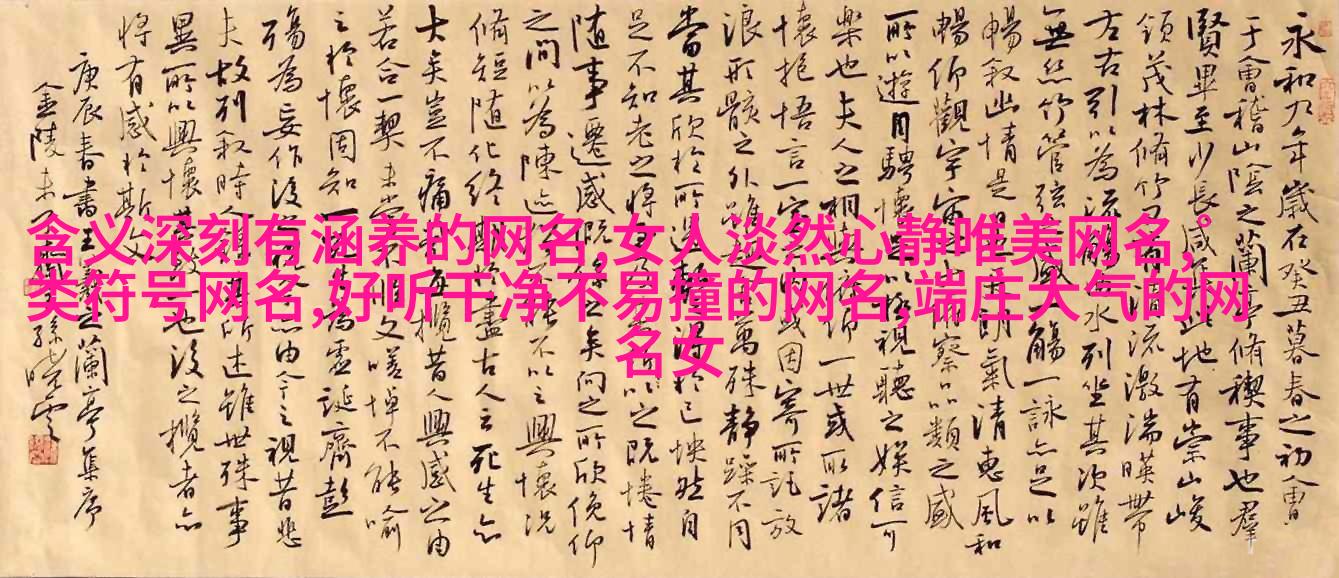 含义深刻有涵养的网名,女人淡然心静唯美网名,°
类符号网名,好听干净不易撞的网名,端庄大气的网
名女
永和九年歲在癸丑暮春之初會
于會稽山陰之蘭亭脩禊事也群
賢畢至少長咸集此地有崇山峻
領茂林脩竹又有清流激湍暎帶
左右引以為流觴曲水列坐其次雖
無絲竹管弦之盛一觴一詠亦足以
暢叙幽情是日也天朗氣清惠風和
暢仰觀宇宙之大俯察品類之盛
所以遊目騁懷足以極視聽之娛信可
樂也夫人之相與俯仰一世或取諸
懷抱悟言一室之內或因寄所託放
浪形骸之外雖趣舍萬殊靜躁不同
當其欣於所遇暫得於己怏然自
足不知老之將至及其所之既惓情
隨事遷感慨係之矣向之所欣俛仰
之間以為陳迹猶不能不以之興懷況
脩短隨化終期於盡古人云死生亦
大矣豈不痛哉每攬昔人興感之由
若合一契未嘗不臨文嗟悼不能喻
之於懷固知一死生為虛誕齊彭
殤為妄作後之視今亦由今之視昔悲
夫故列叙時人錄其所述雖世殊事
異所以興懷其致一也後之攬者亦
將有感於斯文
庚辰春書王羲之蘭亭集序
金陵孫曉雲